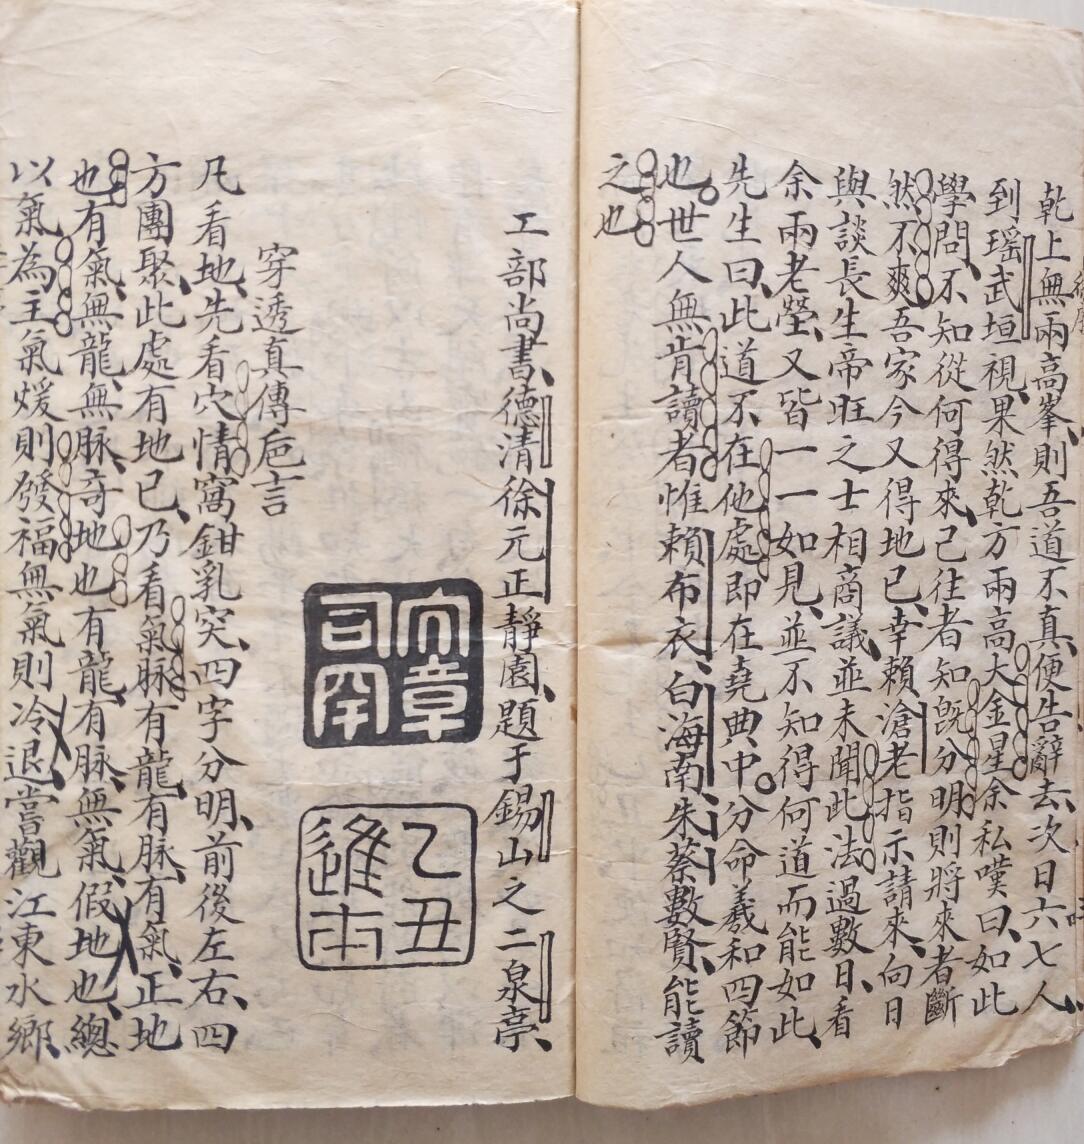 乾上無兩高峯、則吾道不真、便告辭去、次日六七人
到瑶武垣視、果然乾方兩高大金星、余私嘆曰、如此
學問、不知從何得來、已往者知旣分明、則將來者斷
然不爽、吾家今又得地已、幸賴滄老指示請來、向日
與談長生帝旺之士相商議、並未聞此法、過數日、看
余兩老塋、又皆一一如見、並不知得何道而能如此、
先生曰、此道不在他處、即在堯典中。分命羲和四節
也。世人無肯讀者、惟賴布衣、白海南、朱蔡數賢、能讀
之也
工部尚書、德清徐元正靜園、題于錫山之二泉亭、
文章司冏
乙丑進士
穿透真傳巵言
凡看地、先看穴情、窩鉗乳突、四字分明、前後左右、四
方團聚、此處有地已、乃看氣脉、有龍、有脉、有氣、正地
也、有氣、無龍、無脉、奇地也、有龍、有脉、無氣、假地也、總
以氣為主、氣煖則發福、無氣則冷退、嘗觀江東水鄉、